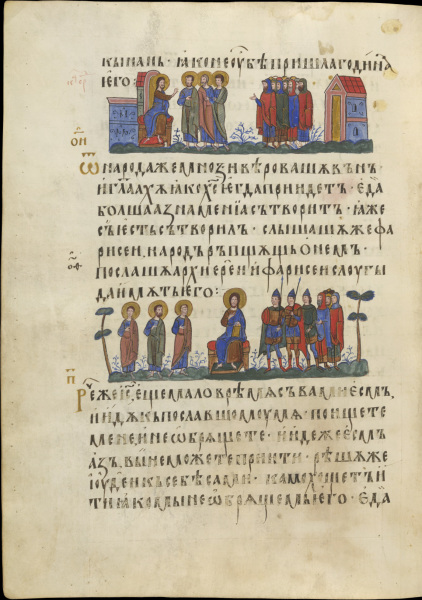 кы нань · ꙗко не ѹ бѣ пришла година
ѥго :
ѻ҃и
Ѿ народа же мноѕи вѣровашѧ вь нь ·
и гл҃аахѫ ꙗко х҃с ѥгда прїидеть · еда
болшаа знаменїа сътворитъ · ꙗже
съи ѥсть сътворилъ · слышашѧ же фа
рисеи народъ ръпщѫщь ѡ немъ ·
ѻ҃ѳ
послашѧ архиереи и фарисеи слоугы
да имѫтъ ѥго :
п҃
Рече же і҃с · еще мало врѣмѧ съ вами есмъ ·
и идѫ къ пославшомоу мѧ · поищете
мене и не ѡбрѧщете · и идеже есмъ
азъ вы не можете прїити · рѣшѧ же
іоудеи къ себѣ сами · камо хощетъ и
ти ꙗко мы не ѡбрѧщемь ѥго · еда